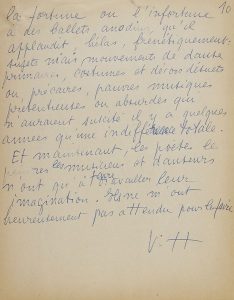 10
la fortune ou l'infortune
à des ballets anodins qu'il
applaudit, hélas, frénétiquement.
sujets niais mouvements de danse
primaires, costumes et décors désuets
ou précaires, pauvres musiques
prétentieuses ou absurdes qui
n'auraient suscité il y a quelques
années qu'une indifférence totale.
Et maintenant, les poètes le
les musiciens et danseurs
n'ont qu'à faire travailler leur
imagination. Ils ne m'ont
heureusement pas attendu pour le faire
V. H